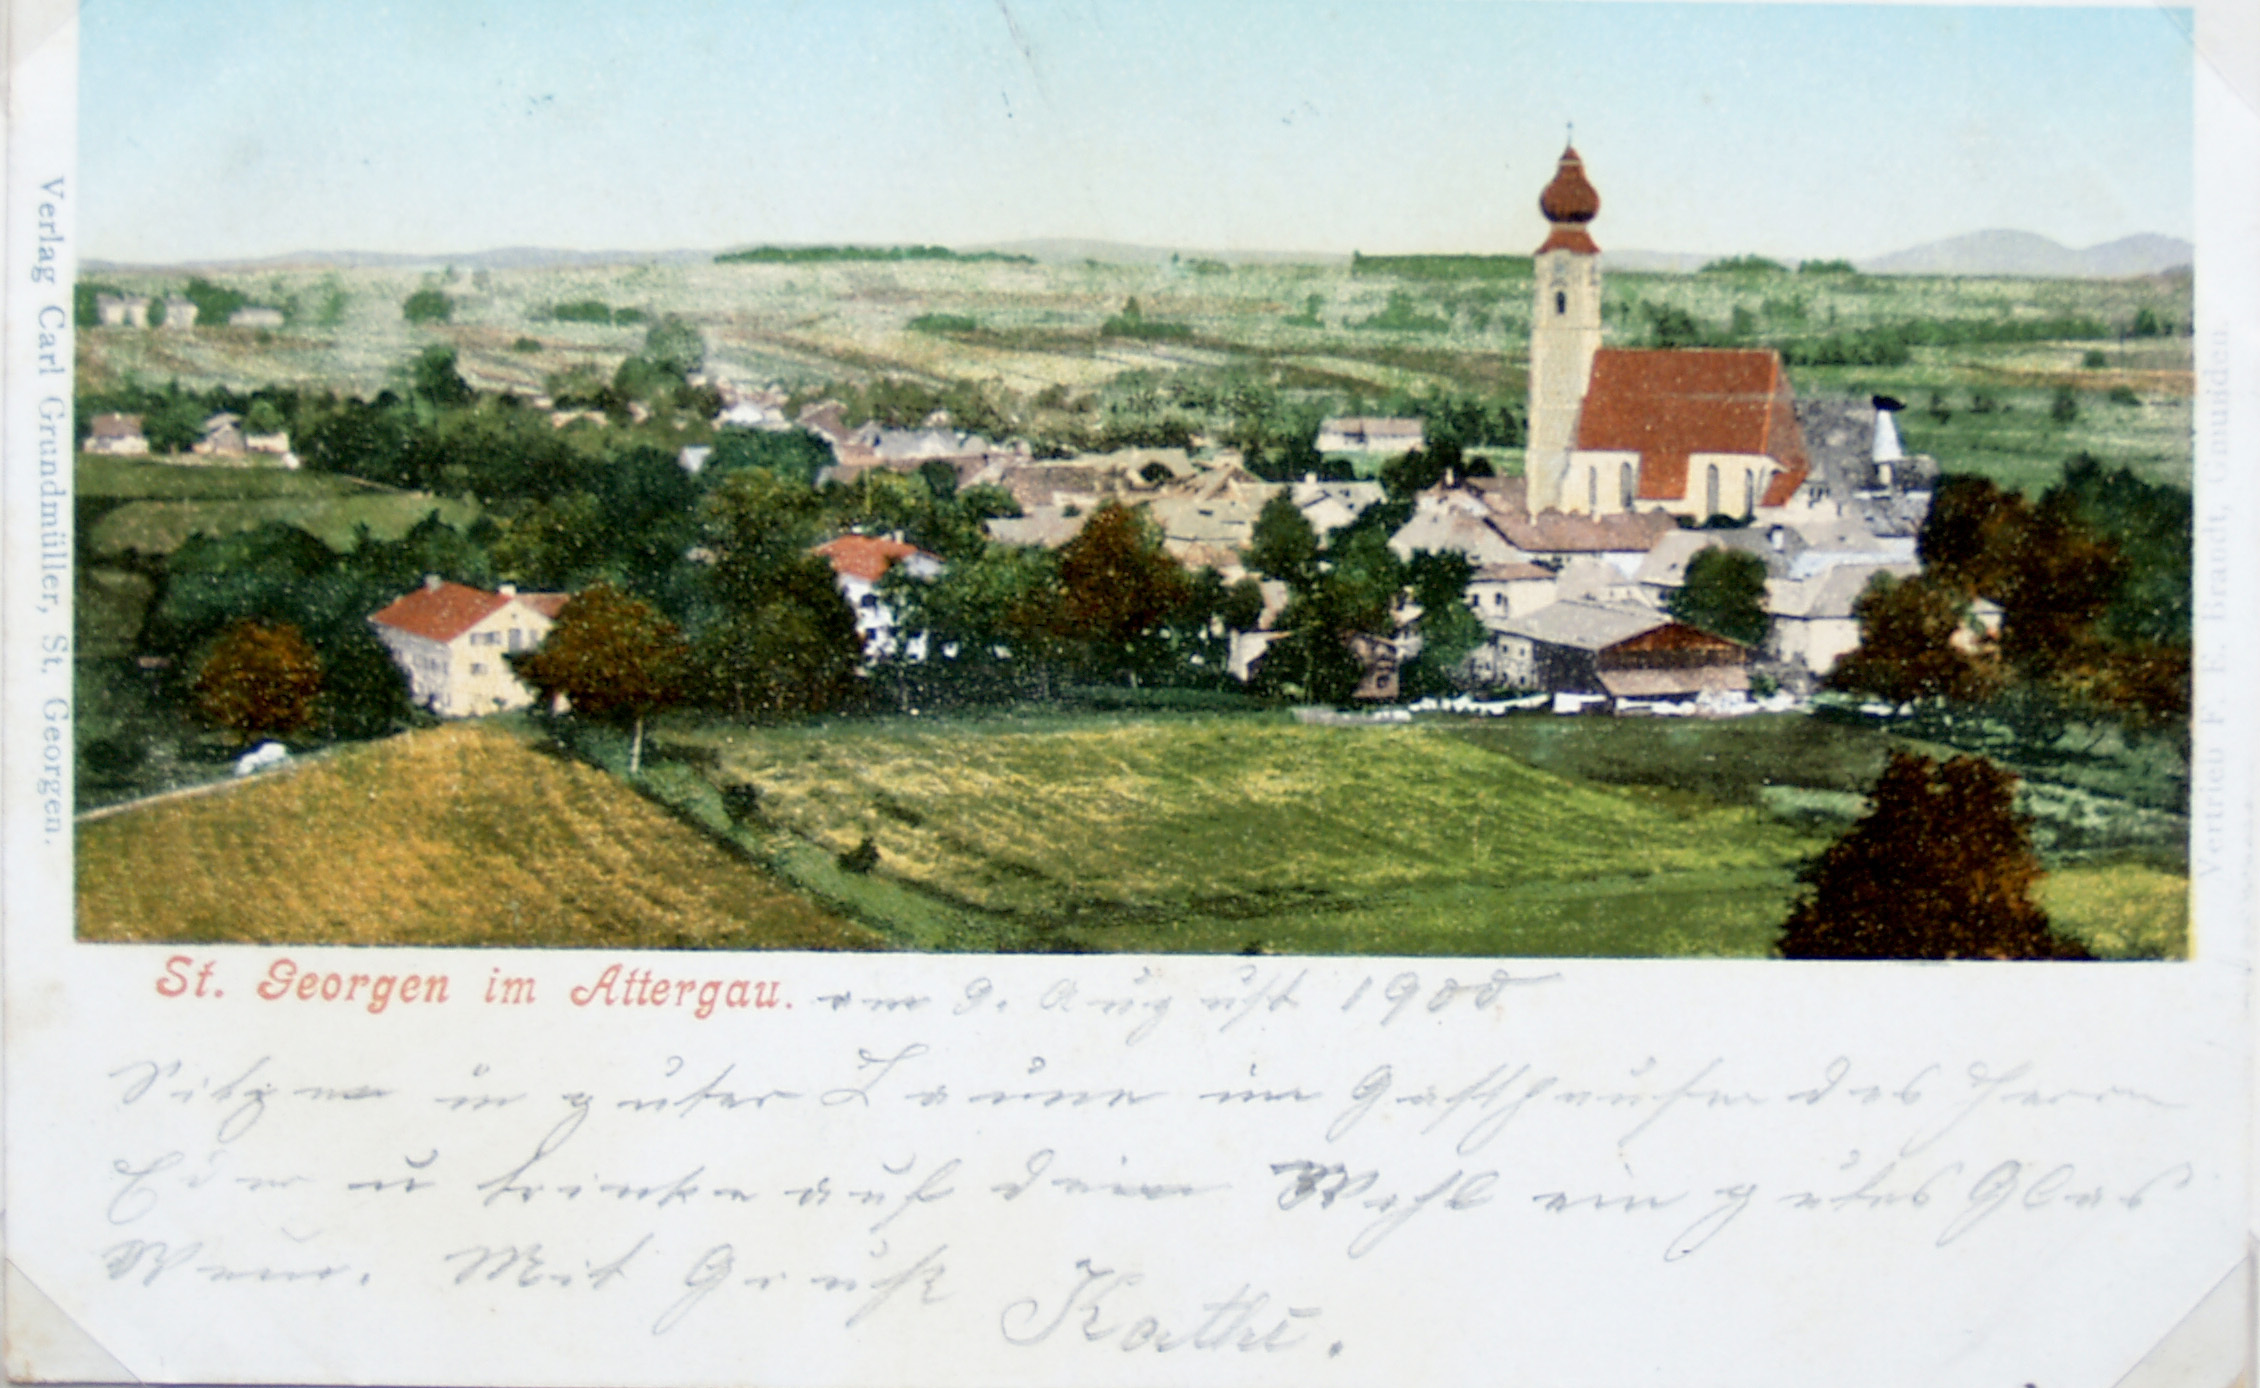 Verlag Carl Grundmüller, St. Georgen.
Vertrieb F. E. Brandt, Gmunden.
St. Georgen im Attergau. am 9. August 1900
Sitzen in guter Laune im Gasthause des Herrn
u trinke auf dein Wohl ein gutes Glas
Wein. Mit Gruß Kathi.